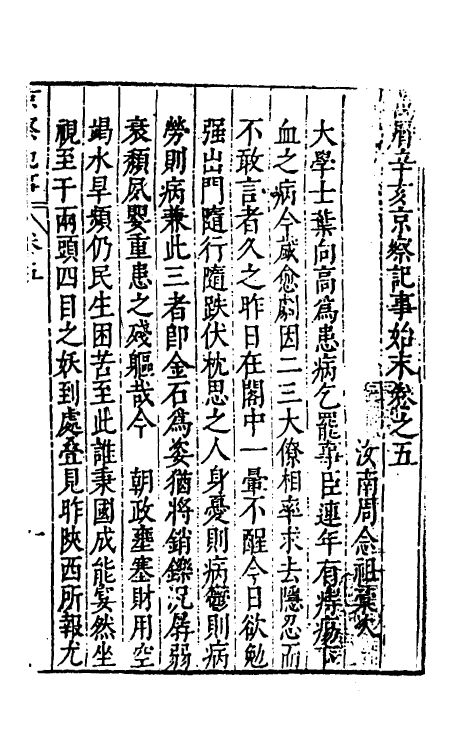 萬曆辛亥京察記事始末卷之五
汝南周念祖彙次
大學士葉向高爲患病乞罷事臣連年有痔瘍下
血之病今歲愈劇因二三大僚相率求去隱忍而
不敢言者久之昨日在閣中一暈不醒今日欲勉
强出門隨行隨跌伏枕思之人身憂則病鬱則病
勞則病兼此三者卽金石爲姿猶將銷鑠況孱弱
衰頹夙嬰重患之殘軀哉今　朝政壅塞財用空
竭水旱頻仍民生困苦至此誰秉國成能宴然坐
視至于兩頭四目之妖到處叠見昨陝西所報尤
京察記事　卷五
一